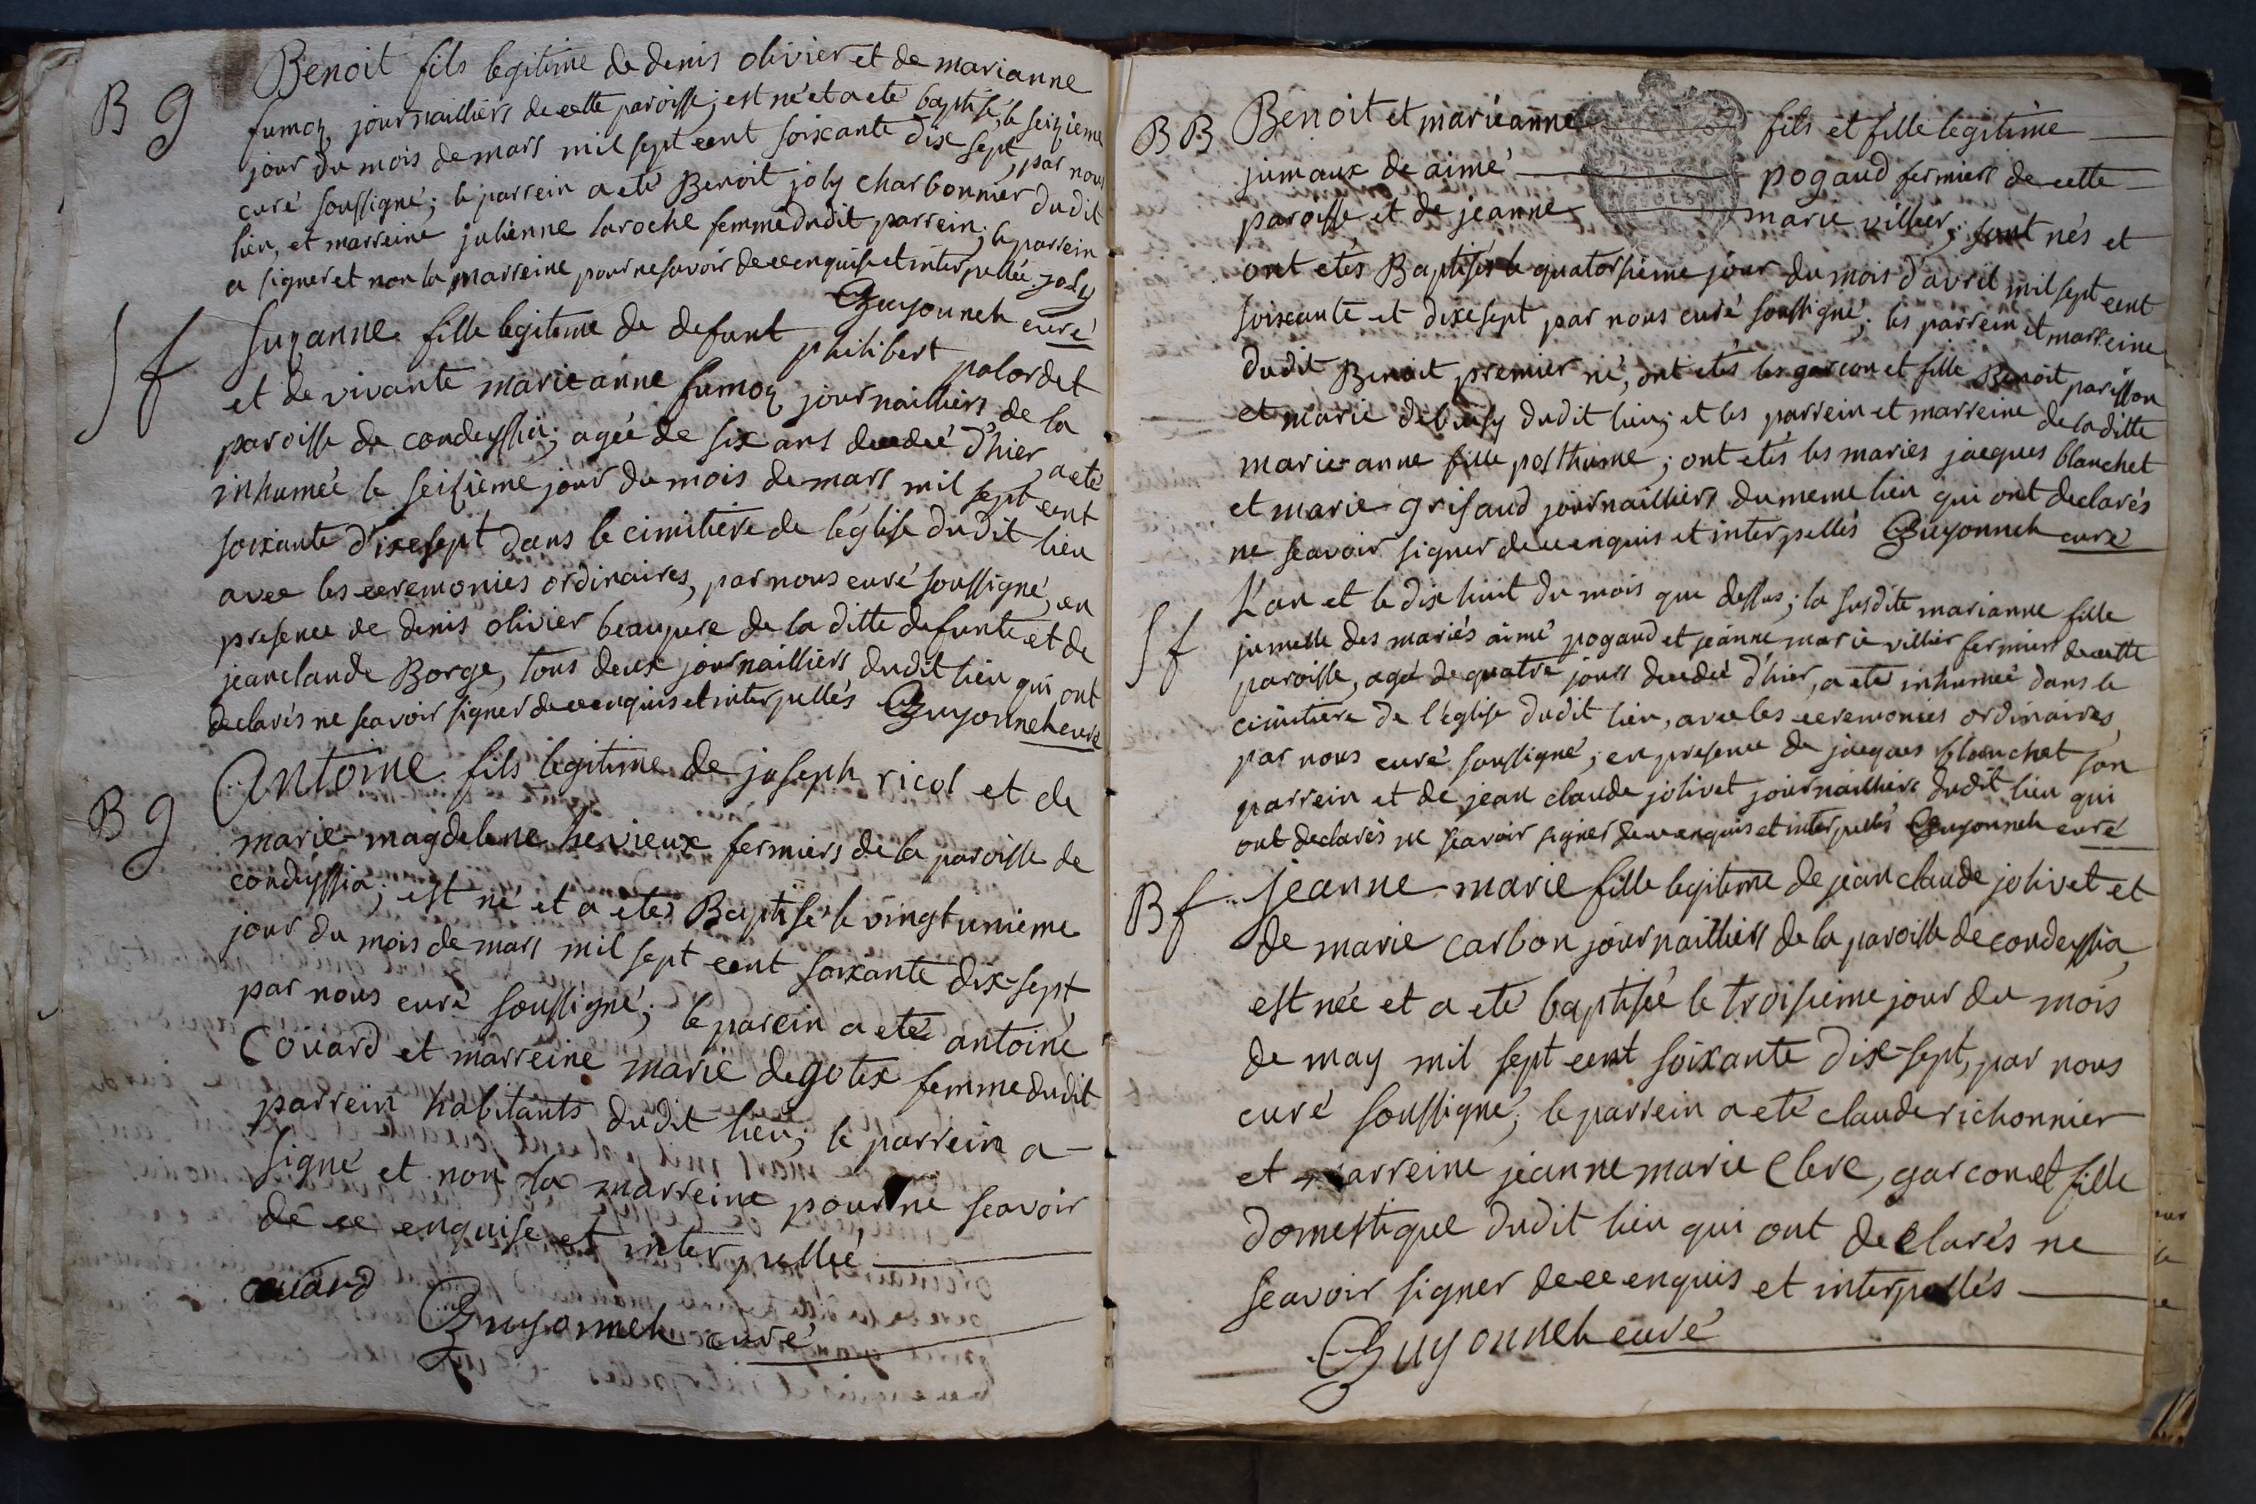 B g
Benoit fils legitime de denis olivier et de marianne
fumoz journailliers de cette paroisse; est né et a eté baptisé, le seizieme
jour du mois de mars mil sept cent soixante dix sept, par nous
curé soussigné; le parrein a eté Benoit joly charbonnier dudit
lieu, et marreine julienne laroche femme dudit parrein; le parrein
a signer et non la marreine pour ne savoir de ce enquise et interpellée. joly
Guyonneh curé
S f
Suzanne fille legitime de defunt philibert palordet
et de vivante marieanne fumoz journailliers de la
paroisse de condeyssia; agée de six ans decedé d'hier, a eté
inhumée le seizieme jour du mois de mars mil sept cent
soixante dixesept dans le cimitiere de l'église dudit lieu
avec les ceremonies ordinaires, par nous curé soussigné, en
presence de denis olivier beaupere de la ditte defunte et de
jeanclaude Borge, tous deux journailliers dudit lieu qui ont
declarés ne scavoir signer de ce enquis et interpellés Guyonneh curé
B g
Antoine fils legitime de joseph ricol et de
marie-magdelene hevieux fermiers de la paroisse de
condeyssia; est né et a etés Baptisé le vingt unieme
jour du mois de mars mil sept cent soixante dix-sept
par nous curé soussigné; le parein a eté antoine
Couard et marreine marie degotex femme dudit
parrein habitants dudit lieu; le parrein a
signé et non la marreine pour ne scavoir
de ce enquise et interpellée
couard
Guyonneh curé
B B
Benoit et marieanne fils et fille legitime
jumaux de aimé pogaud fermiers de cette
paroisse et de jeanne marie villier; sont nés et
ont etés Baptisés le quatorsieme jour du mois d'avril mil sept cent
soixante et dixesept par nous curé soussigné; les parrein et marreine
dudit Benoit premier né, ont etés les garçon et fille Benoit parisson
et marie debussy dudit lieu; et les parrein et marreine de la ditte
marie-anne fille posthume; ont etés les mariés jacques blanchet
et marie grisaud journailliers du meme lieu qui ont declarés
ne scavoir signer de ce enquis et interpellés Guyonneh curé
S f
L'an et le dix huit du mois que dessus; la susdite marianne fille
jumelle des mariés aimé pogaud et jeanne marie villier fermiers de cette
paroisse, agé de quatre jours decedé d'hier, a eté inhumée dans le
cimitiere de l'église dudit lieu, avec les ceremonies ordinaires,
par nous curé soussigné; en presence de jacques blanchet son
parrein et de jean claude jolivet journailliers dudit lieu qui
ont declarés ne scavoir signer de ce enquis et interpellés Guyonneh curé
B f
Jeanne-marie fille legitime de jean claude jolivet et
de marie carbon journailliers de la paroisse de condeyssia,
est née et a eté baptisée le troisieme jour du mois
de may mil sept cent soixante dix-sept, par nous
curé soussigné; le parrein a eté claude richonnier
et marreine jeanne marie Clere, garcon et fille
domestique dudit lieu qui ont declarés ne
scavoir signer de ce enquis et interpellés
Guyonneh curé